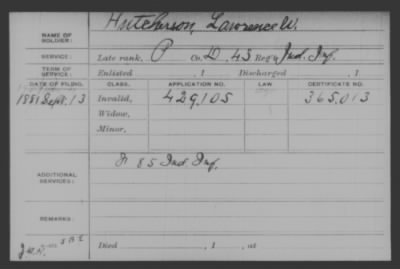 NAME OF SOLDIER: Hutcherson, Lawrence W.
SERVICE: Late rank, P Co. D, 43 Reg't Ind. Inf.
TERM OF SERVICE: Enlisted , 1 Discharged , 1
DATE OF FILING. CLASS. APPLICATION NO. LAW CERTIFICATE NO.
1881 Sept. 13 Invalid, 429,105 365,013
Widow,
Minor,
ADDITIONAL SERVICES: 85 Ind Inf.
REMARKS:
Died , 1 , at